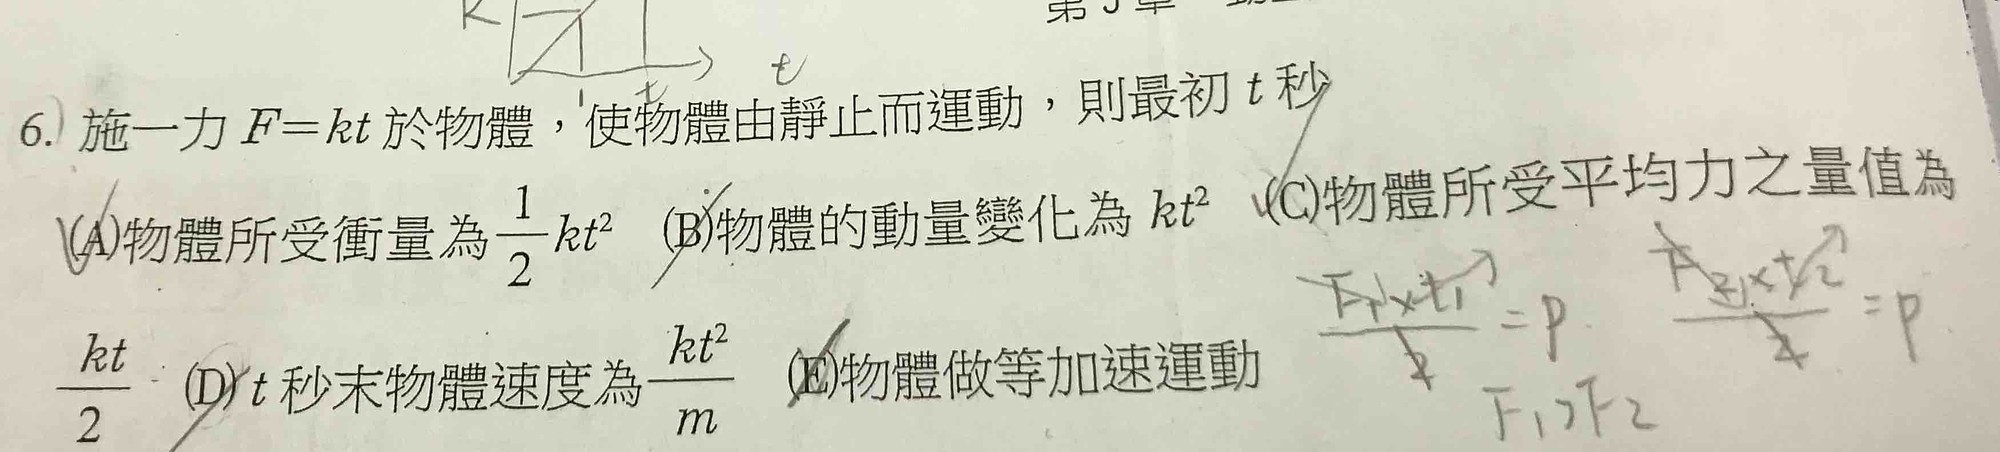 K
t
1 t
6. 施一力 F=kt 於物體，使物體由靜止而運動，則最初 t 秒
(A)物體所受衝量為 1/2 kt² (B)物體的動量變化為 kt² (C)物體所受平均力之量值為
kt/2 (D) t 秒末物體速度為 kt²/m (E)物體做等加速運動
F₁×t₁/2 = P
F₂×t₂/2 = P
F₁>F₂